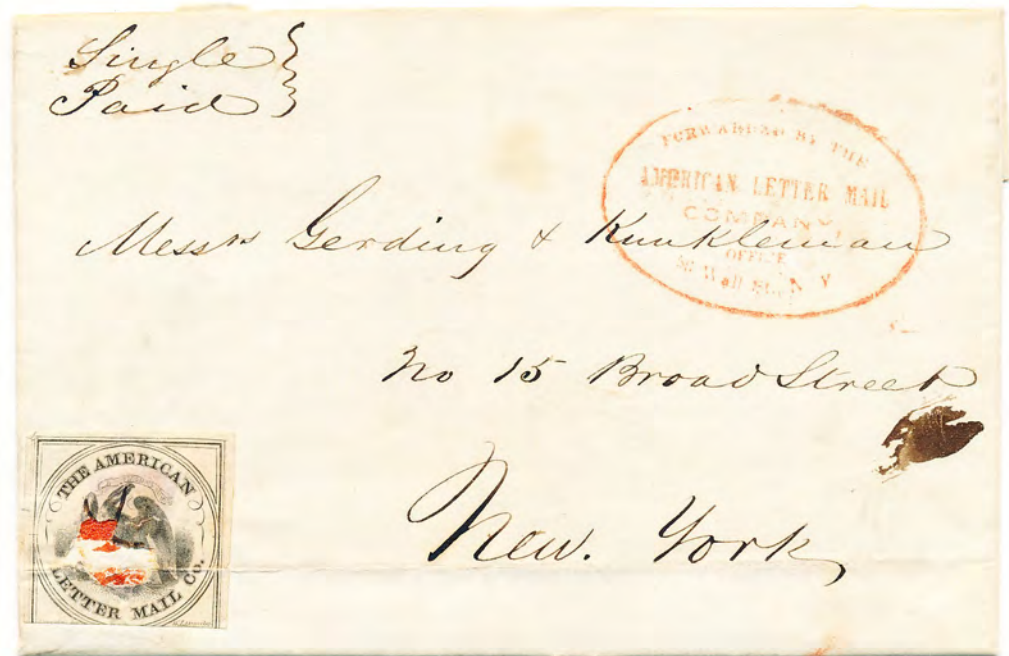 Single
Paid
FORWARDED BY THE
AMERICAN LETTER MAIL
COMPANY,
OFFICE
Wall St. N Y
Messrs Gerding & Kunkleman
No 15 Broad Street
New. York
THE AMERICAN
LETTER MAIL Co.